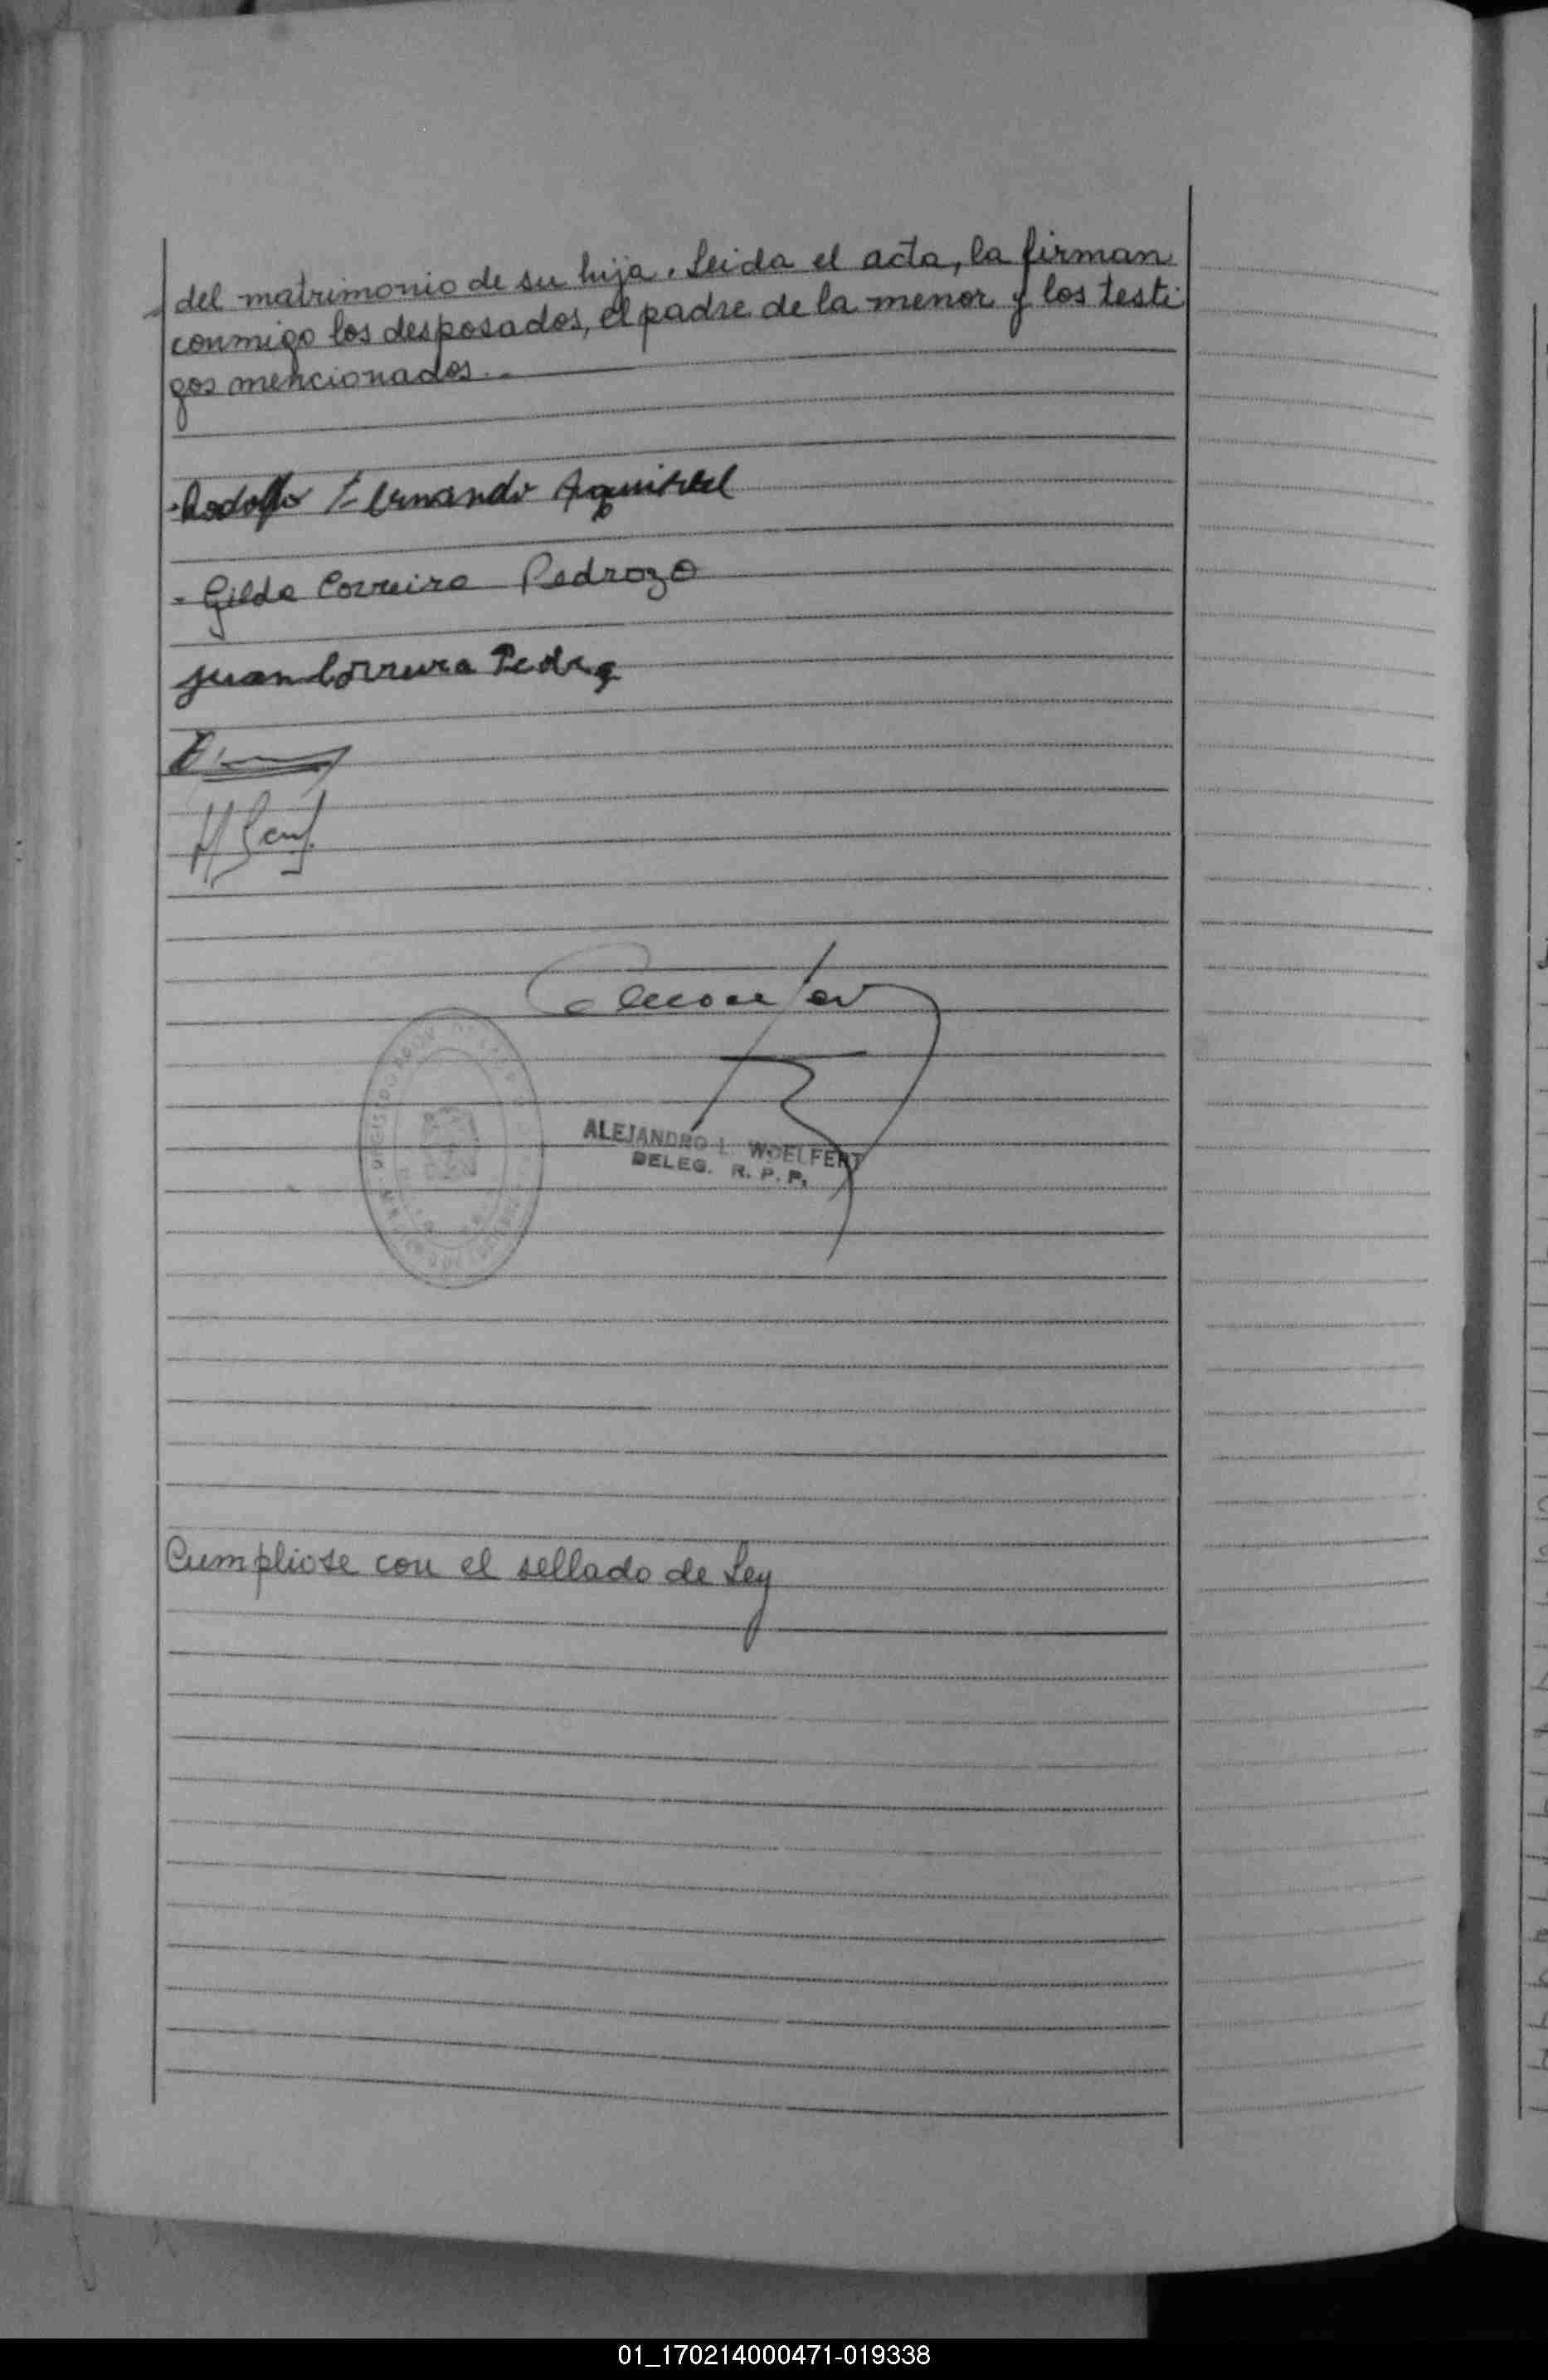 del matrimonio de su hija. Leida el acta, la firman
conmigo los desposados, el padre de la menor y los testi
gos mencionados.-
Rodolfo Fernando
- Gilda Correira Pedrozo
Juan Correira
ALEJANDRO L. WOELFERT
DELEG. R. P. P.
Cumpliose con el sellado de Ley
01_170214000471-019338